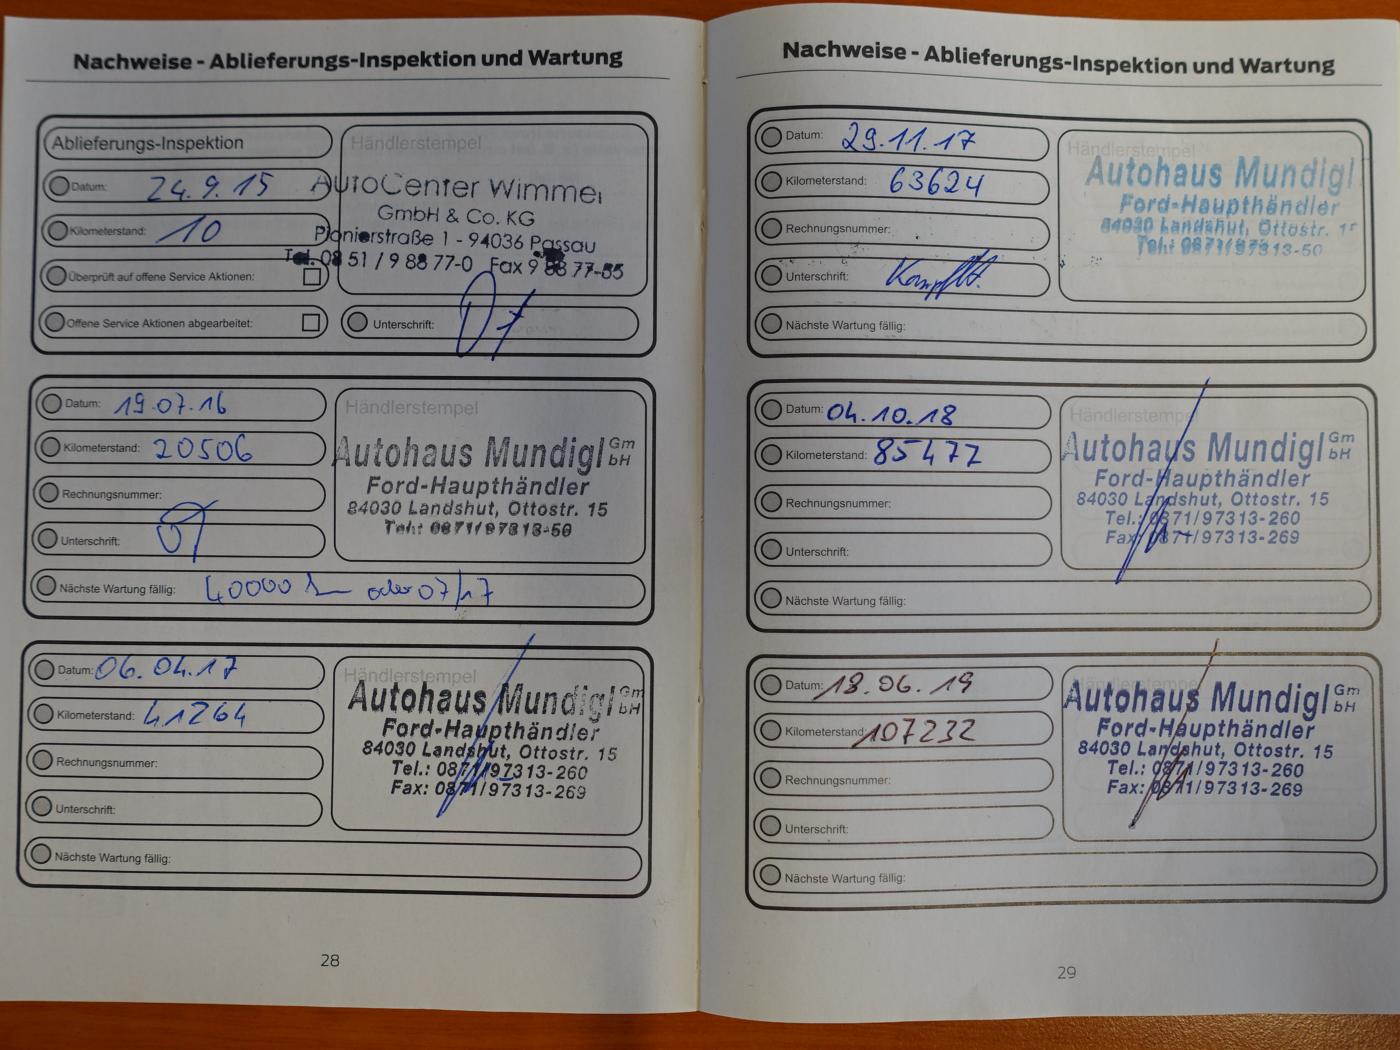 Nachweise - Ablieferungs-Inspektion und Wartung
Ablieferungs-Inspektion
Datum: 24.9.15
Kilometerstand: 10
Überprüft auf offene Service Aktionen:
Offene Service Aktionen abgearbeitet:
Händlerstempel
AutoCenter Wimmer
GmbH & Co. KG
Pionierstraße 1 - 94036 Passau
Tel. 08 51 / 9 88 77-0 Fax 9 88 77-55
Unterschrift:
Datum: 19.07.16
Kilometerstand: 20506
Rechnungsnummer:
Unterschrift:
Nächste Wartung fällig: 40000 oder 07/17
Händlerstempel
Autohaus Mundigl GmbH
Ford-Haupthändler
84030 Landshut, Ottostr. 15
Tel.: 0871/97313-50
Datum: 06.04.17
Kilometerstand: 41264
Rechnungsnummer:
Unterschrift:
Nächste Wartung fällig:
Händlerstempel
Autohaus Mundigl GmbH
Ford-Haupthändler
84030 Landshut, Ottostr. 15
Tel.: 0871/97313-260
Fax: 0871/97313-269
28
Nachweise - Ablieferungs-Inspektion und Wartung
Datum: 29.11.17
Kilometerstand: 63624
Rechnungsnummer:
Unterschrift:
Nächste Wartung fällig:
Händlerstempel
Autohaus Mundigl
Ford-Haupthändler
84030 Landshut, Ottostr.
Tel.: 0871/97313-50
Datum: 04.10.18
Kilometerstand: 85477
Rechnungsnummer:
Unterschrift:
Nächste Wartung fällig:
Händlerstempel
Autohaus Mundigl GmbH
Ford-Haupthändler
84030 Landshut, Ottostr. 15
Tel.: 0871/97313-260
Fax: 0871/97313-269
Datum: 18.06.19
Kilometerstand: 107232
Rechnungsnummer:
Unterschrift:
Nächste Wartung fällig:
Autohaus Mundigl GmbH
Ford-Haupthändler
84030 Landshut, Ottostr. 15
Tel.: 0871/97313-260
Fax: 0871/97313-269
29